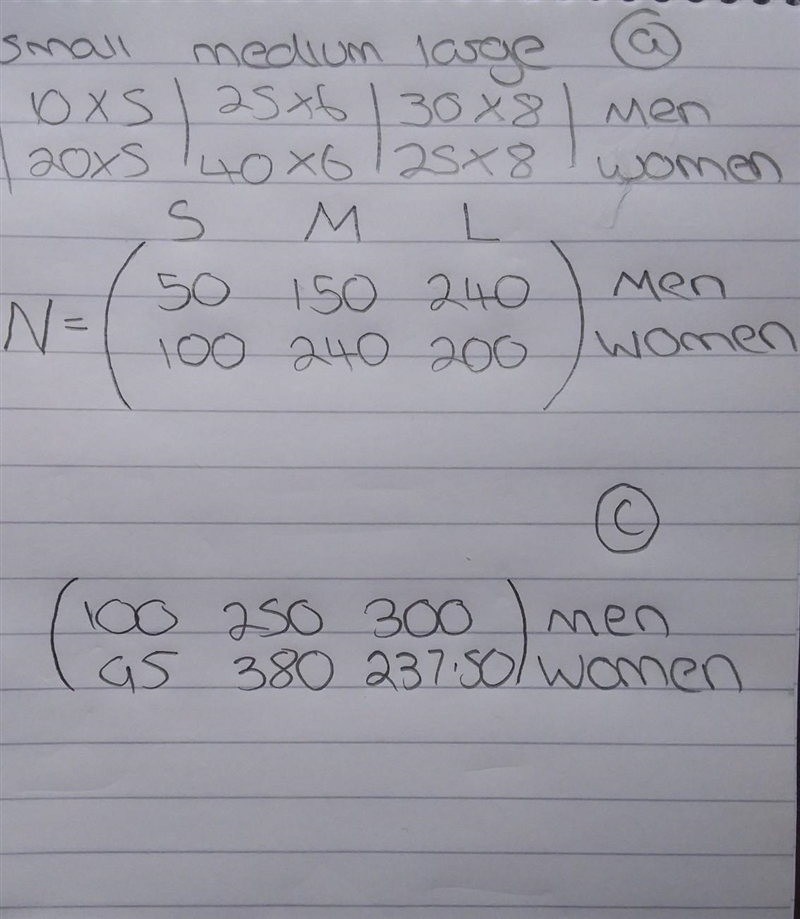 small medium large (a)
10 x 5 | 25 x 6 | 30 x 8 | Men
| 20 x 5 | 40 x 6 | 25 x 8 | women
S M L
N = ( 50 150 240 ) Men
( 100 240 200 ) women
(c)
( 100 250 300 ) men
( 95 380 237.50 ) women